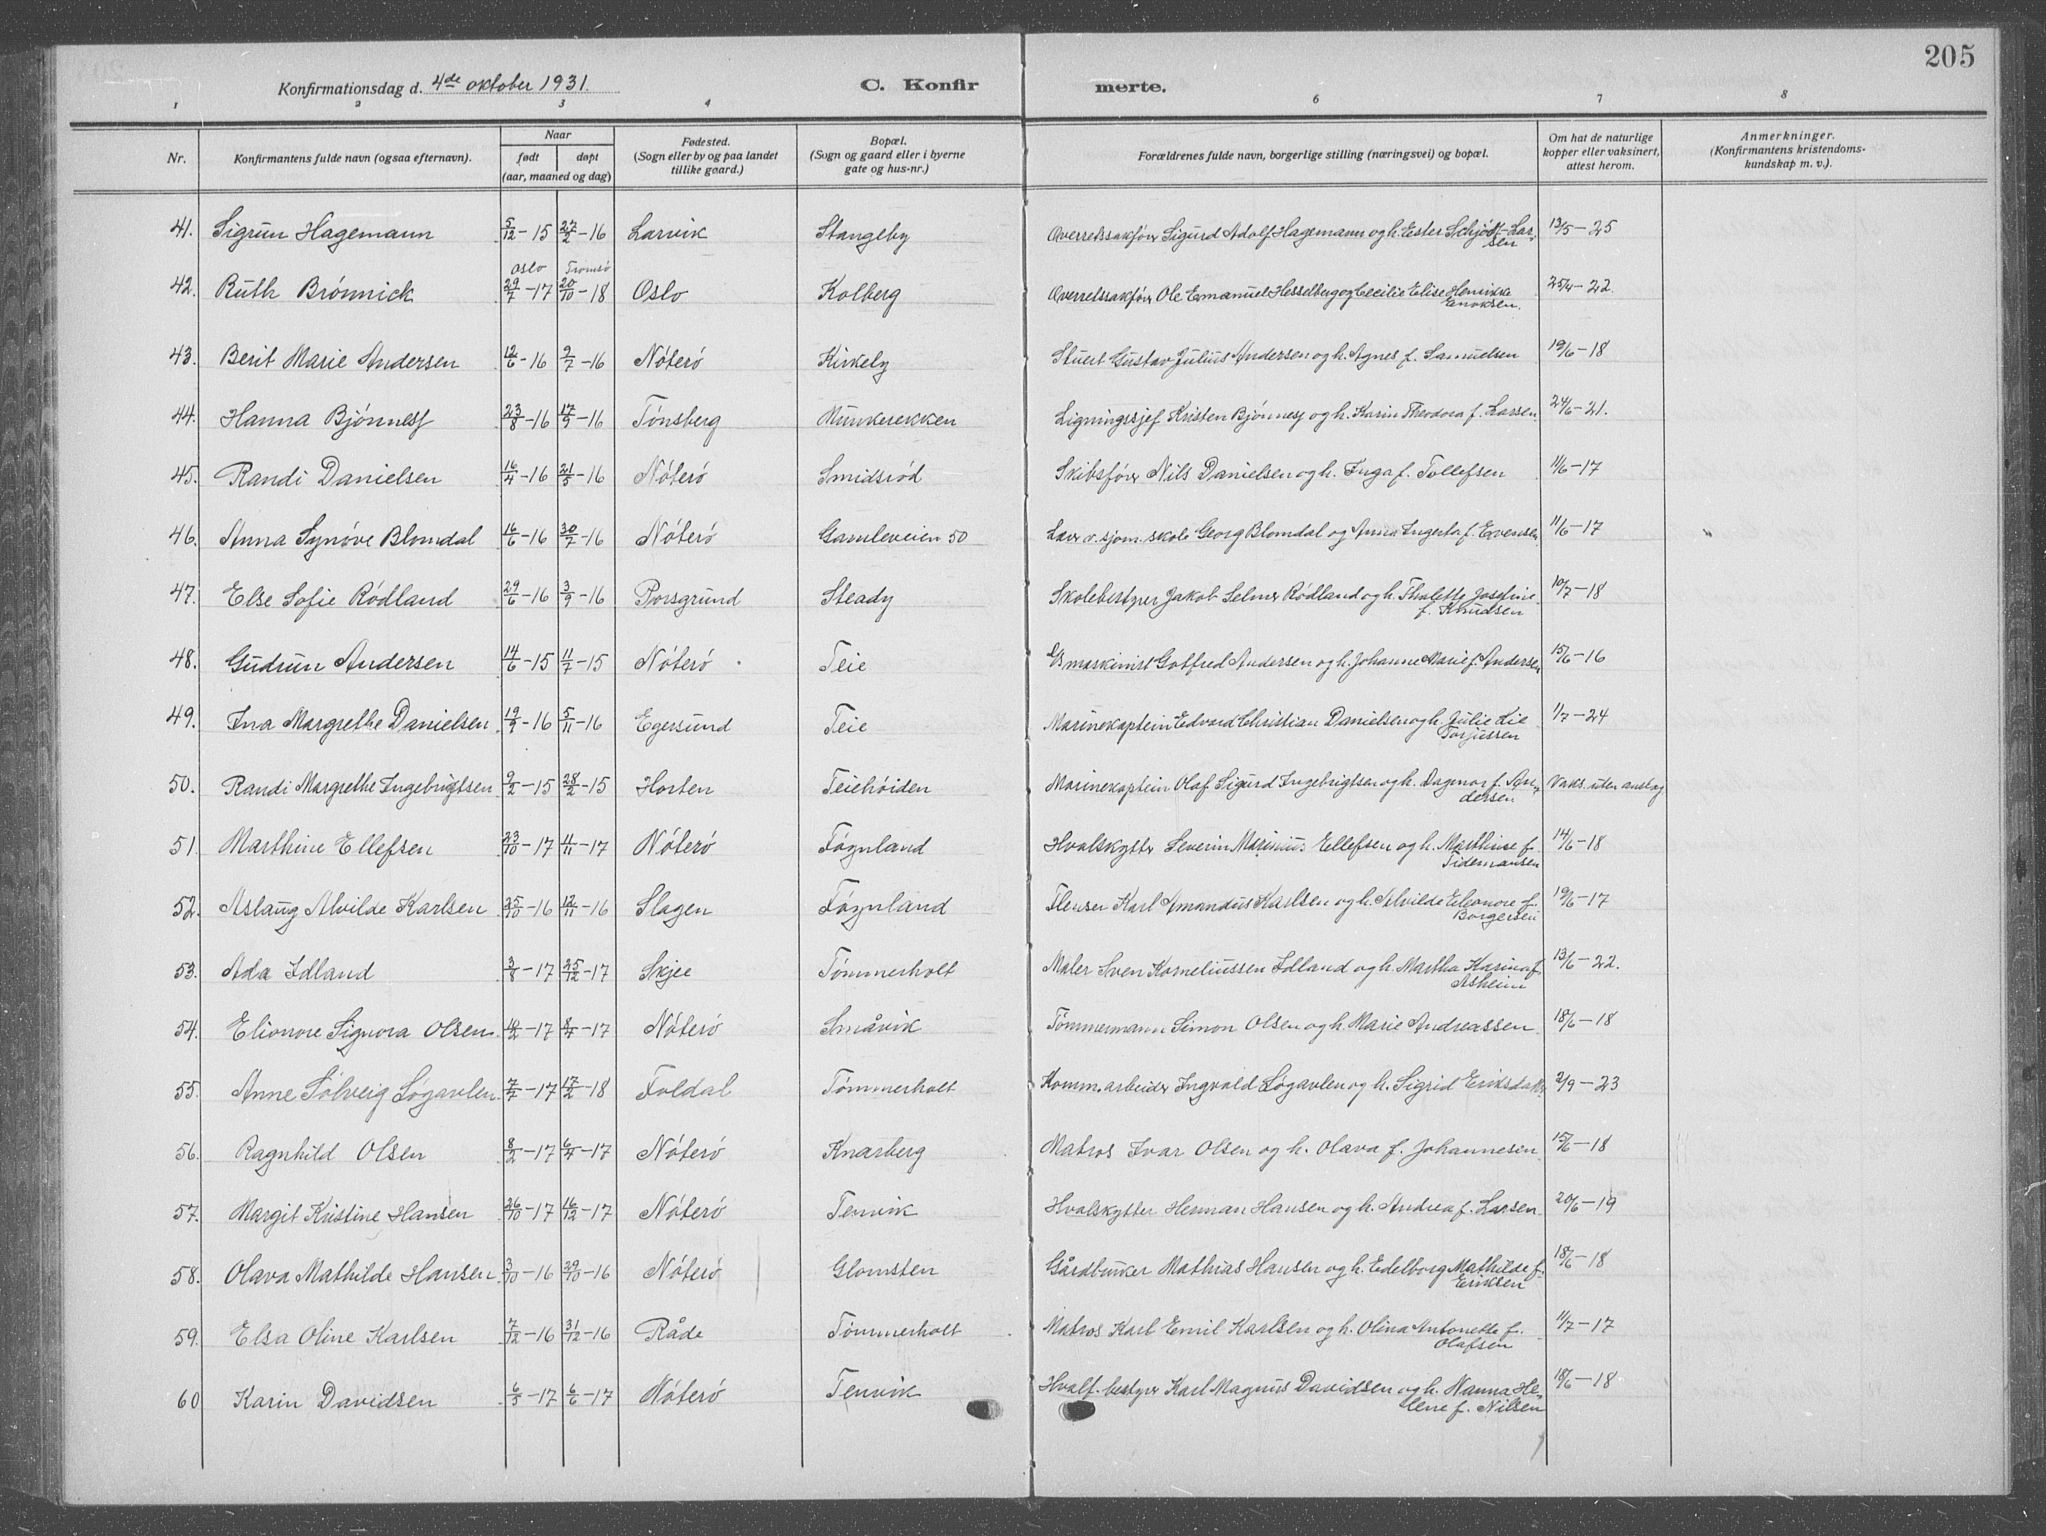 205
Konfirmationsdag d. 4de oktober 1931.
C. Konfir merte.
1 2 3 4 6 7 8
Nr. Konfirmantens fulde navn (ogsaa efternavn). Naar født døpt (aar, maaned og dag) Fødested. (Sogn eller by og paa landet tillike gaard.) Bopæl. (Sogn og gaard eller i byerne gate og hus-nr.) Forældrenes fulde navn, borgerlige stilling (næringsvei) og bopæl. Om hat de naturlige kopper eller vaksinert, attest herom. Anmerkninger. (Konfirmantens kristendoms-kundskap m. v.).
41. Sigrun Hagemann 5/12-15 27/2-16 Larvik Stangeby Overretssakfører Sigurd Adolf Hagemann og h. Ester Schjødt-Lar- 13/5-25
sen
Oslo Tromsø
42. Ruth Brønnick 29/7-17 20/10-18 Oslo Kolberg Overretssakfører Ole Emanuel Hesselberg og Cecilie Elise Henrikke 25/4-22
Enoksen.
43. Berit Marie Andersen 12/6-16 9/7-16 Nøterø Kirkeby Stuert Gustav Julius Andersen og h. Agnes f. Samuelsen 19/6-18
44. Hanna Bjønness 23/8-16 17/9-16 Tønsberg Munkerekken Ligningssjef Kristen Bjønness og h. Karin Theodora f. Larsen. 24/6-21.
45. Randi Danielsen 16/4-16 21/5-16 Nøterø Smidsrød Skibsfører Nils Danielsen og h. Inga f. Tollefsen 11/6-17
46. Anna Synøve Blomdal 16/6-16 30/7-16 Nøterø Gamleveien 50 Lærer v. sjøm. skole Georg Blomdal og Anna Ingerta f. Evensen 11/6-17
47. Else Sofie Rødland 29/6-16 3/9-16 Porsgrund Steady Skolebestyrer Jakob Selmer Rødland og h. Thalette Josefine 10/7-18
f. Knudsen
48. Gudrun Andersen 14/6-15 11/7-15 Nøterø Teie maskinist Gotfred Andersen og h. Johanne Marie f. Andersen 15/6-16
49. Ina Margrethe Danielsen 19/9-16 5/11-16 Egersund Teie Marinekaptein Edvard Christian Danielsen og h. Julie Lie 1/7-24
Torjussen
50. Randi Margrethe Ingebrigtsen 9/2-15 28/2-15 Horten Teiehøiden Marinekaptein Olaf Sigurd Ingebrigtsen og h. Dagmar f. An- Vaks. uten anslag
dersen
51. Marthine Ellefsen 23/10-17 11/11-17 Nøterø Føynland Hvalskytter Severin Marinius Ellefsen og h. Marthine f. 14/6-18
Tidemansen
52. Aslaug Alvilde Karlsen 25/10-16 12/11-16 Slagen Føynland Flenser Karl Amandus Karlsen og h. Alvilde Eleonore f. 19/6-17
Borgersen
53. Ada Idland 3/8-17 25/12-17 Skjee Tømmerholt Maler Sven Korneliussen Idland og h. Martha Karina f. 13/6-22.
Asheim
54. Elionore Signora Olsen 12/2-17 8/4-17 Nøterø Småvik Tømmermann Simon Olsen og h. Marie Andreassen 18/6-18
55. Anne Sølveig Søgavlen 7/7-17 17/2-18 Foldal Tømmerholt Komm. arbeider Ingvald Søgavlen og h. Sigrid Eriksdatter 2/9-23
56. Ragnhild Olsen 8/2-17 6/4-17 Nøterø Knarberg Matros Ivar Olsen og h. Olava f. Johannesen 15/6-18
57. Margit Kristine Hansen 26/10-17 16/12-17 Nøterø Tenvik Hvalskytter Herman Hansen og h. Andrea f. Larsen 20/6-19
58. Olava Mathilde Hansen 3/10-16 29/10-16 Nøterø Glomsten Gårdbruker Mathias Hansen og h. Edelborg Mathilde f. 18/6-18
Eriksen
59. Elsa Oline Karlsen 7/12-16 31/12-16 Råde Tømmerholt Matros Karl Emil Karlsen og h. Olina Antonette f. 11/7-17
Olafsen
60 Karin Davidsen 6/5-17 6/6-17 Nøterø Tenvik Hvalf. bestyrer Karl Magnus Davidsen og h. Nanna He- 18/6-18
lene f. Nilsen